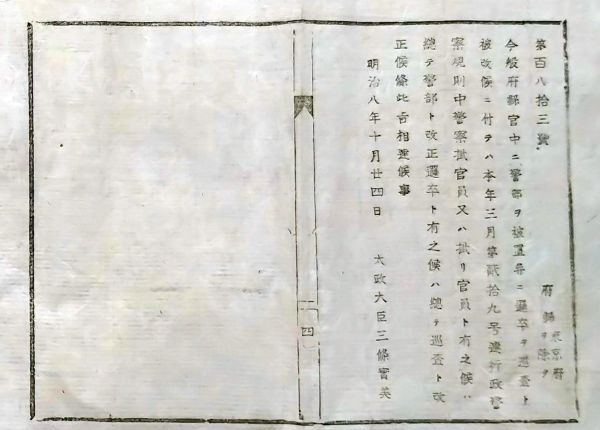 第百八拾三號
東京府
府縣ヲ除ク
今般府縣官中ニ警部ヲ被置并ニ邏卒ヲ巡査ト
被改候ニ付テハ本年三月第貳拾九号達行政警
察規則中警察掛官員又ハ掛リ官員ト有之候ハ
總テ警部ト改正邏卒ト有之候ハ總テ巡査ト改
正候條此旨相達候事
明治八年十月廿四日
太政大臣三條實美
二四